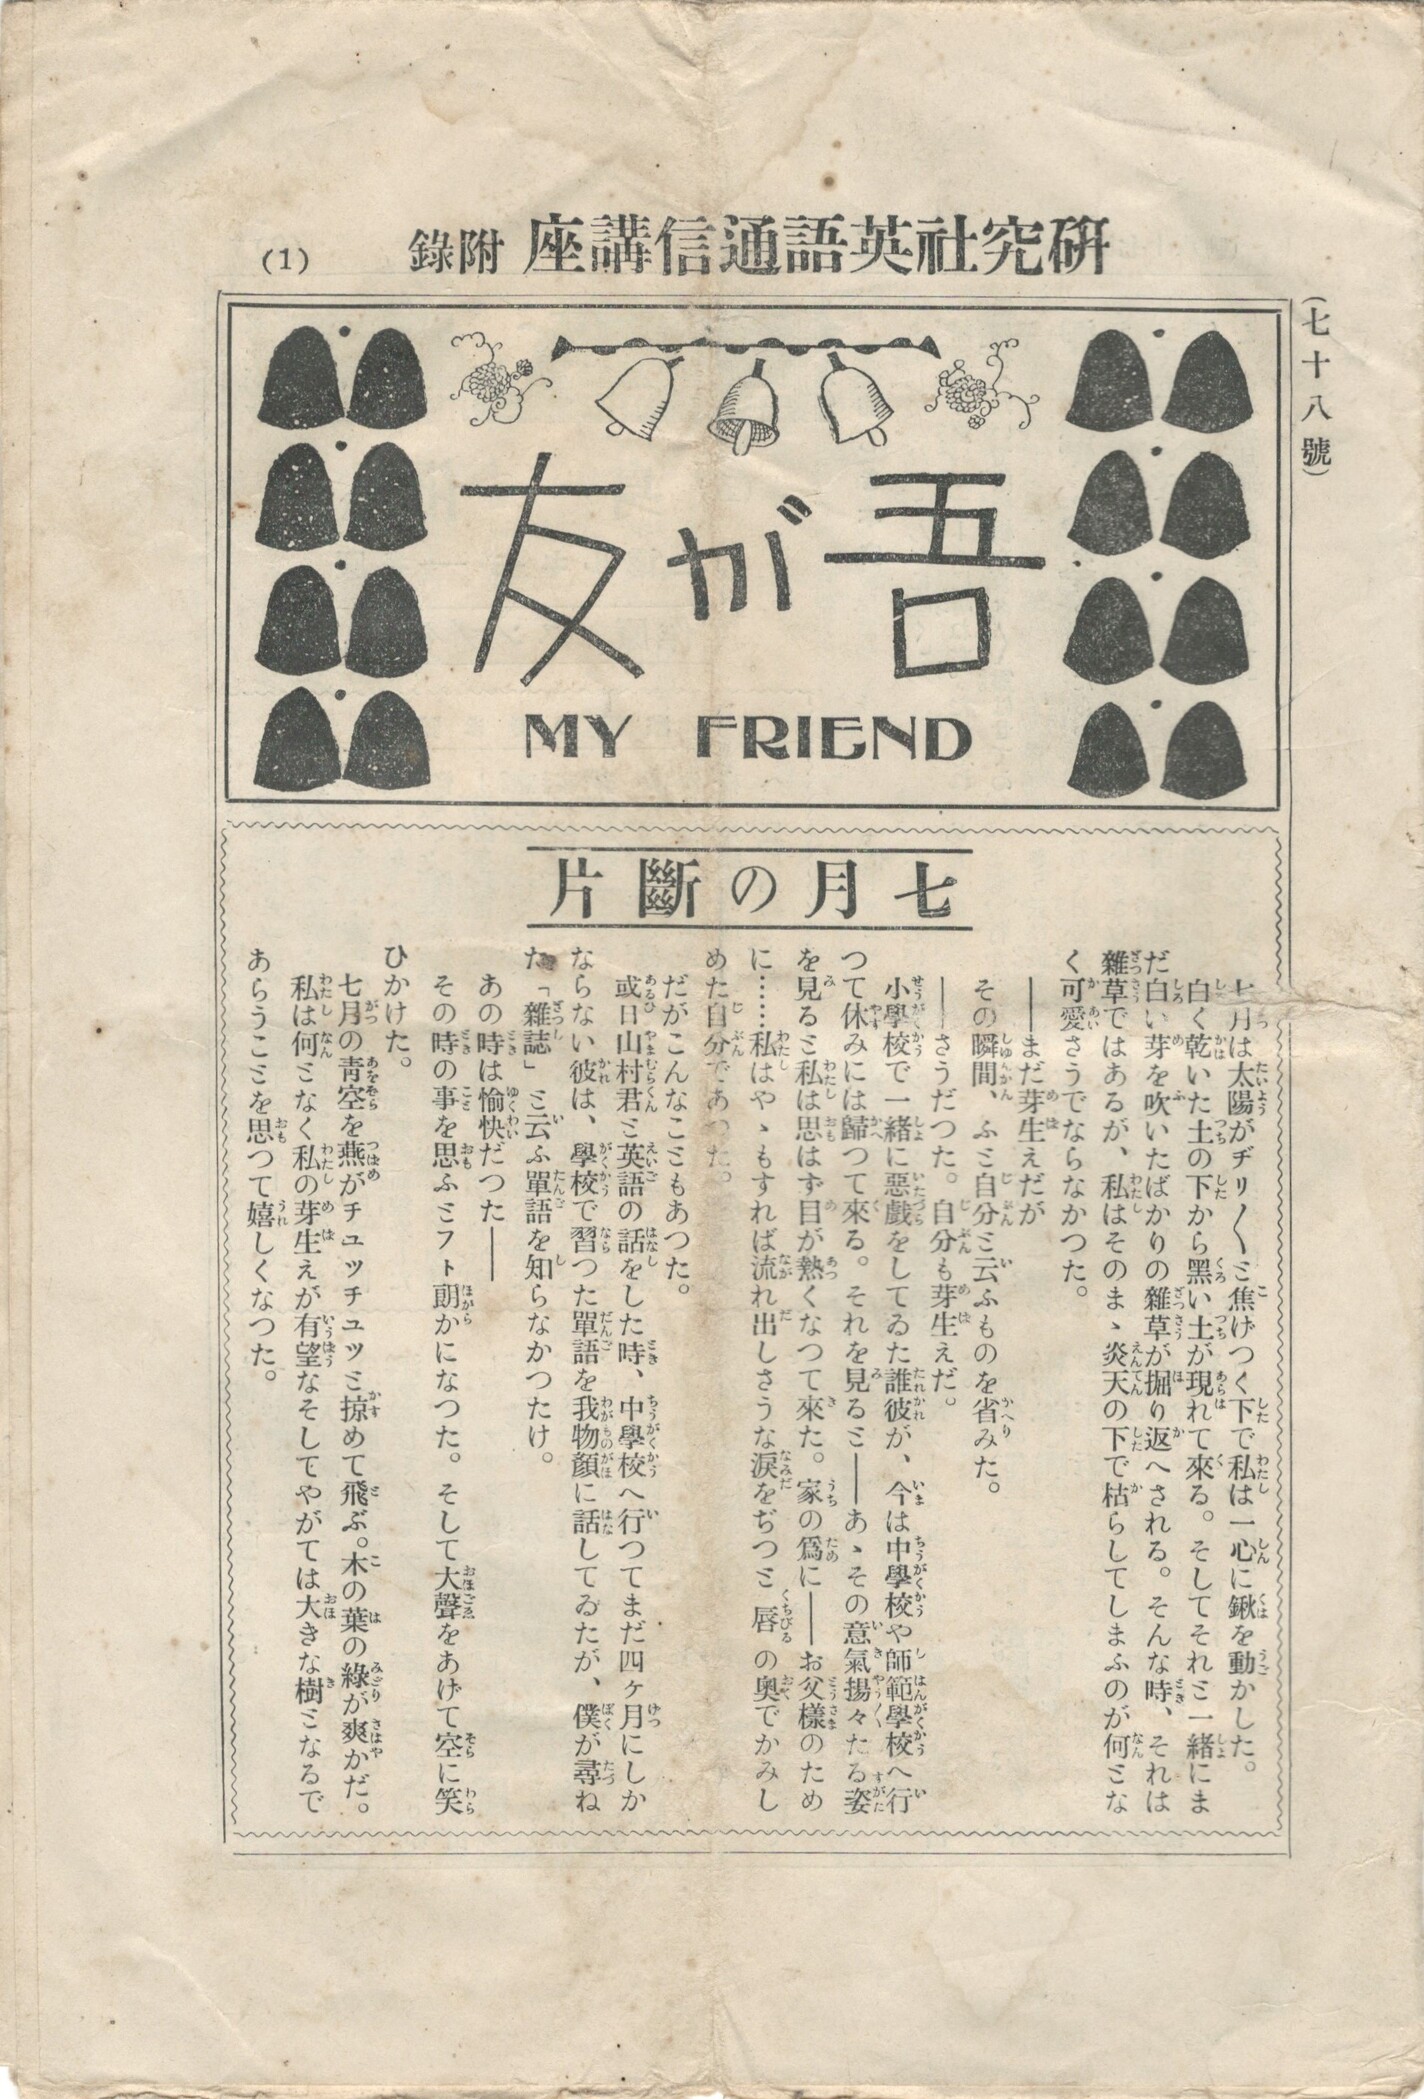 研究社英語通信講座 附錄
(1)
(七十八號)
吾が友
MY FRIEND
七月の斷片
七月は太陽がヂリ〳〵と焦げつく下で私は一心に鍬を動かした。
白く乾いた土の下から黑い土が現れて來る。そしてそれと一緒にま
だ白い芽を吹いたばかりの雜草が掘り返へされる。そんな時、それは
雜草ではあるが、私はそのまゝ炎天の下で枯らしてしまふのが何とな
く可愛さうでならなかつた。
――まだ芽生えだが
その瞬間、ふと自分と云ふものを省みた。
――さうだつた。自分も芽生えだ。
小學校で一緖に惡戲をしてゐた誰彼が、今は中學校や師範學校へ行
つて休みには歸つて來る。それを見ると――あゝその意氣揚々たる姿
を見ると私は思はず目が熱くなつて來た。家の爲に――お父樣のため
に……私はやゝもすれば流れ出しさうな淚をぢつと唇の奧でかみし
めた自分であつた。
だがこんなこともあつた。
或日山村君と英語の話をした時、中學校へ行つてまだ四ヶ月にしか
ならない彼は、學校で習つた單語を我物顏に話してゐたが、僕が尋ね
た「雜誌」と云ふ單語を知らなかつたけ。
あの時は愉快だつた――
その時の事を思ふとフト朗かになつた。そして大聲をあげて空に笑
ひかけた。
七月の靑空を燕がチユツチユツと掠めて飛ぶ。木の葉の綠が爽かだ。
私は何となく私の芽生えが有望なそしてやがては大きな樹となるで
あらうことを思つて嬉しくなつた。